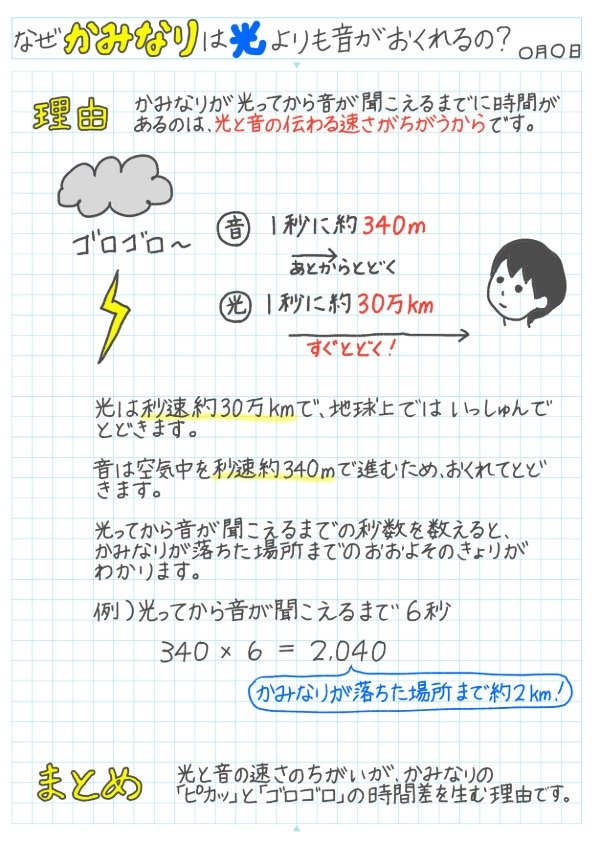 なぜかみなりは光よりも音がおくれるの？
〇月〇日
理由
かみなりが光ってから音が聞こえるまでに時間が
あるのは、光と音の伝わる速さがちがうからです。
ゴロゴロ～
音 1秒に約340m
あとからとどく
光 1秒に約30万km
すぐとどく！
光は秒速約30万kmで、地球上ではいっしゅんで
とどきます。
音は空気中を秒速約340mで進むため、おくれてとど
きます。
光ってから音が聞こえるまでの秒数を数えると、
かみなりが落ちた場所までのおおよそのきょりが
わかります。
例）光ってから音が聞こえるまで6秒
340 × 6 = 2,040
かみなりが落ちた場所まで約2km！
まとめ
光と音の速さのちがいが、かみなりの
「ピカッ」と「ゴロゴロ」の時間差を生む理由です。